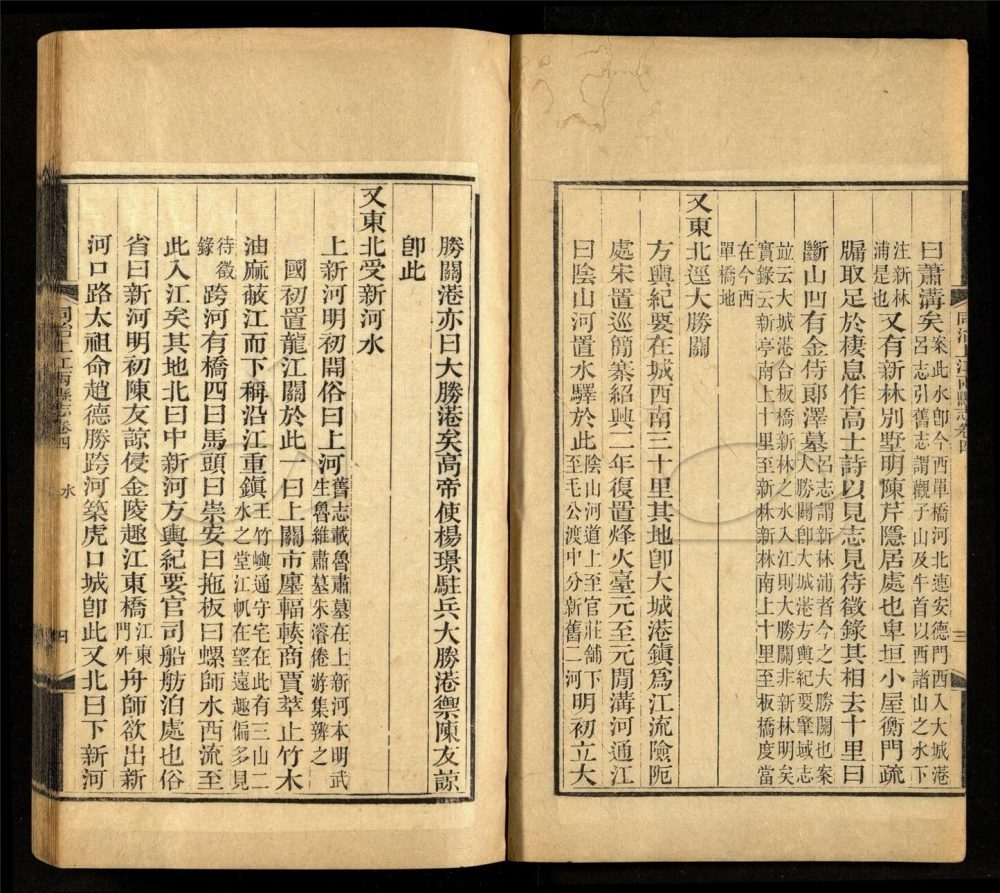 曰蕭溝矣案此水卽今西單橋河北連安德門西入大城港
注新林
浦是也呂志引舊志謂觀子山及牛首以西諸山之水下
又有新林別墅明陳芹隱居處也卑垣小屋衡門疏
牖取足於棲息作高士詩以見志見待徵錄其相去十里曰
斷山凹有金侍郎澤墓呂志謂新林浦者今之大勝關也案
大勝關卽大城港方輿紀要肇域志
並云大城港合板橋新林之水入江則大勝關非新林明矣
實錄云新亭南上十里至新林新林南上十里至板橋度當
在今西
單橋地
又東北逕大勝關
方輿紀要在城西南三十里其地卽大城港鎮爲江流險阨
處宋置巡簡寨紹興二年復置烽火臺元至元閒溝河通江
曰陰山河置水驛於此陰山河道上至官莊舖下
至毛公渡中分新舊二河明初立大
同治上江兩縣志卷四
三
勝關港亦曰大勝港矣高帝使楊璟駐兵大勝港禦陳友諒
卽此
又東北受新河水
上新河明初開俗曰上河舊志載魯肅墓在上新河本明武
生魯維肅墓朱濬倦游集辨之
國初置龍江關於此一曰上關市廛輻輳商賈萃止竹木
油麻蔽江而下稱沿江重鎮王竹嶼通守宅在此有三山二
水之堂江帆在望遠趣偏多見
待徵
錄
跨河有橋四曰馬頭曰崇安曰拖板曰螺師水西流至
此入江矣其地北曰中新河方輿紀要官司船舫泊處也俗
省曰新河明初陳友諒侵金陵趣江東橋江東
門外舟師欲出新
河口路太祖命趙德勝跨河築虎口城卽此又北曰下新河
同治上江兩縣志卷四
水
四